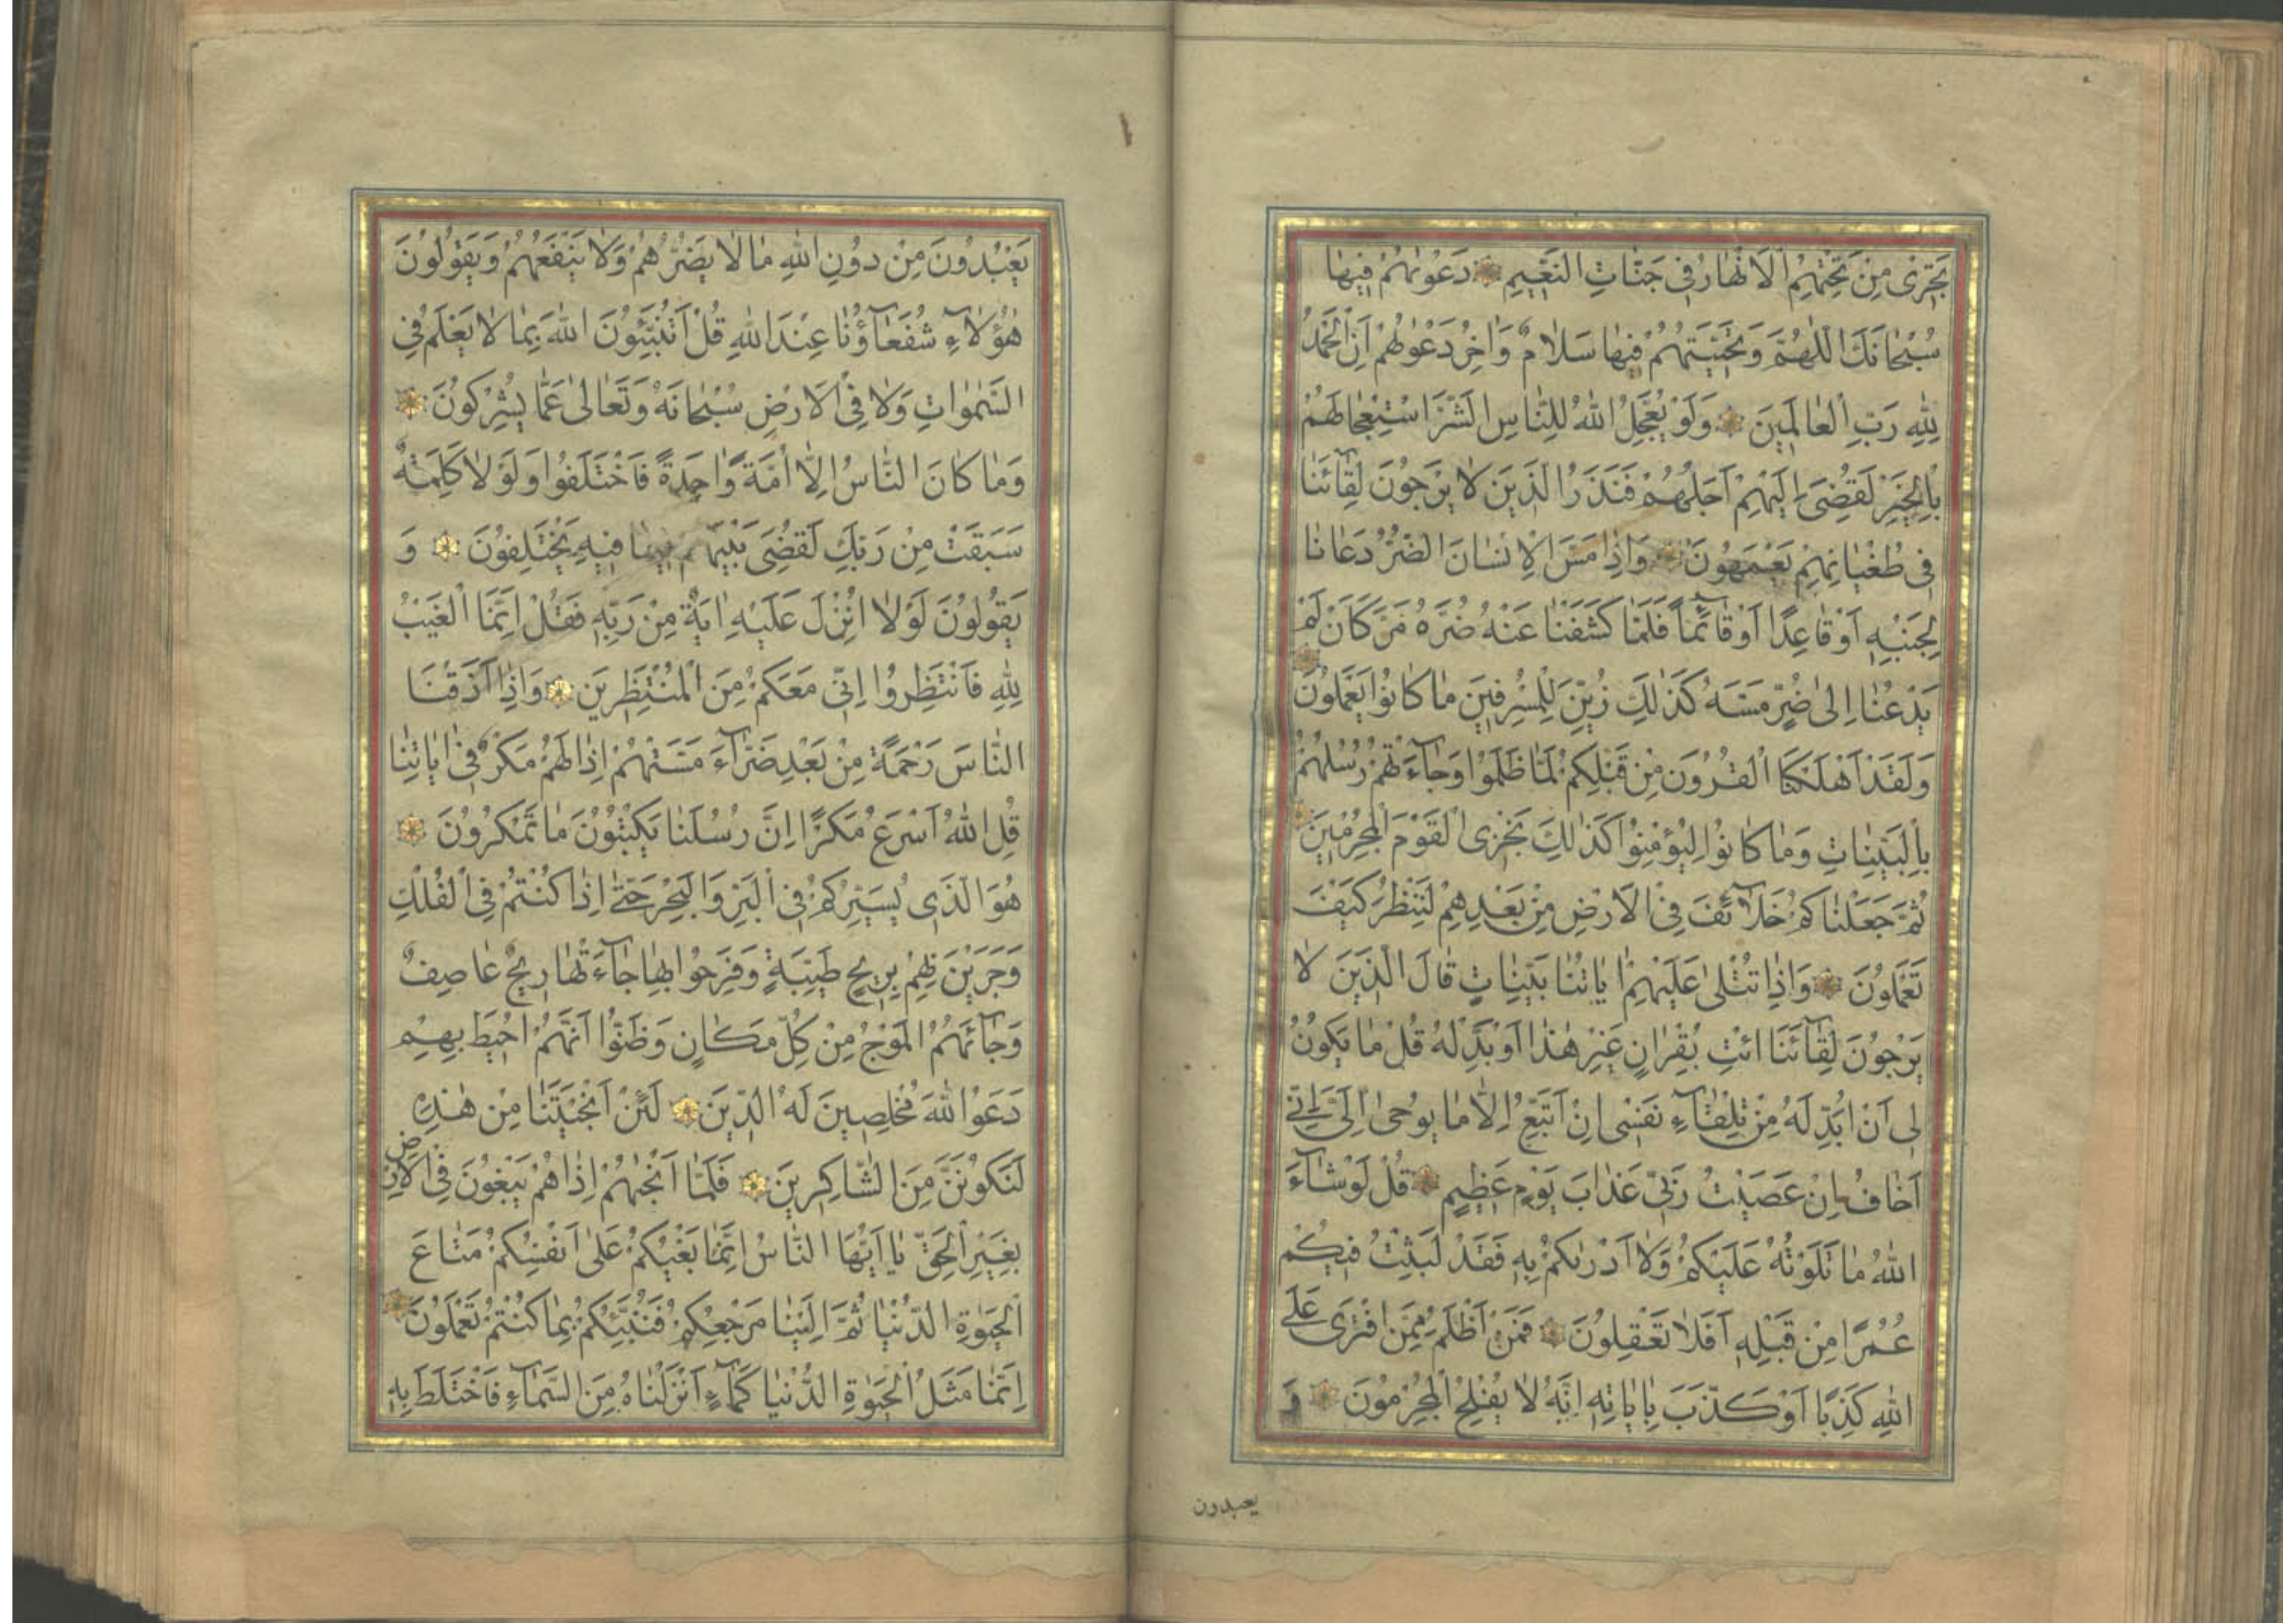 تَجْرٖى مِنْ تَحْتِهِمُ الْاَنْهَارُ فٖى جَنَّاتِ النَّعٖيمِ دَعْوٰيهُمْ فٖيهَا
سُبْحَانَكَ اللّٰهُمَّ وَتَحِيَّتُهُمْ فٖيهَا سَلَامٌ وَاٰخِرُ دَعْوٰيهُمْ اَنِ الْحَمْدُ
لِلّٰهِ رَبِّ الْعَالَمٖينَ وَلَوْ يُعَجِّلُ اللّٰهُ لِلنَّاسِ الشَّرَّ اسْتِعْجَالَهُمْ
بِالْخَيْرِ لَقُضِىَ اِلَيْهِمْ اَجَلُهُمْ فَنَذَرُ الَّذٖينَ لَا يَرْجُونَ لِقَآئَنَا
فٖى طُغْيَانِهِمْ يَعْمَهُونَ وَاِذَا مَسَّ الْاِنْسَانَ الضُّرُّ دَعَانَا
لِجَنْبِهٖ اَوْ قَاعِدًا اَوْ قَآئِمًا فَلَمَّا كَشَفْنَا عَنْهُ ضُرَّهُ مَرَّ كَاَنْ لَمْ
يَدْعُنَا اِلٰى ضُرٍّ مَسَّهُ كَذٰلِكَ زُيِّنَ لِلْمُسْرِفٖينَ مَا كَانُوا يَعْمَلُونَ
وَلَقَدْ اَهْلَكْنَا الْقُرُونَ مِنْ قَبْلِكُمْ لَمَّا ظَلَمُوا وَجَآءَتْهُمْ رُسُلُهُمْ
بِالْبَيِّنَاتِ وَمَا كَانُوا لِيُؤْمِنُوا كَذٰلِكَ نَجْزِى الْقَوْمَ الْمُجْرِمٖينَ
ثُمَّ جَعَلْنَاكُمْ خَلَآئِفَ فِى الْاَرْضِ مِنْ بَعْدِهِمْ لِنَنْظُرَ كَيْفَ
تَعْمَلُونَ وَاِذَا تُتْلٰى عَلَيْهِمْ اٰيَاتُنَا بَيِّنَاتٍ قَالَ الَّذٖينَ لَا
يَرْجُونَ لِقَآئَنَا ائْتِ بِقُرْاٰنٍ غَيْرِ هٰذَا اَوْ بَدِّلْهُ قُلْ مَا يَكُونُ
لٖى اَنْ اُبَدِّلَهُ مِنْ تِلْقَآءِ نَفْسٖى اِنْ اَتَّبِعُ اِلَّا مَا يُوحٰى اِلَىَّ اِنّٖى
اَخَافُ اِنْ عَصَيْتُ رَبّٖى عَذَابَ يَوْمٍ عَظٖيمٍ قُلْ لَوْ شَآءَ
اللّٰهُ مَا تَلَوْتُهُ عَلَيْكُمْ وَلَا اَدْرٰيكُمْ بِهٖ فَقَدْ لَبِثْتُ فٖيكُمْ
عُمُرًا مِنْ قَبْلِهٖ اَفَلَا تَعْقِلُونَ فَمَنْ اَظْلَمُ مِمَّنِ افْتَرٰى عَلَى
اللّٰهِ كَذِبًا اَوْ كَذَّبَ بِاٰيَاتِهٖ اِنَّهُ لَا يُفْلِحُ الْمُجْرِمُونَ وَ
يعبدون
يَعْبُدُونَ مِنْ دُونِ اللّٰهِ مَا لَا يَضُرُّهُمْ وَلَا يَنْفَعُهُمْ وَيَقُولُونَ
هٰؤُلَاءِ شُفَعَآؤُنَا عِنْدَ اللّٰهِ قُلْ اَتُنَبِّئُونَ اللّٰهَ بِمَا لَا يَعْلَمُ فِى
السَّمٰوَاتِ وَلَا فِى الْاَرْضِ سُبْحَانَهُ وَتَعَالٰى عَمَّا يُشْرِكُونَ
وَمَا كَانَ النَّاسُ اِلَّا اُمَّةً وَاحِدَةً فَاخْتَلَفُوا وَلَوْلَا كَلِمَةٌ
سَبَقَتْ مِنْ رَبِّكَ لَقُضِىَ بَيْنَهُمْ فٖيمَا فٖيهِ يَخْتَلِفُونَ وَ
يَقُولُونَ لَوْلَا اُنْزِلَ عَلَيْهِ اٰيَةٌ مِنْ رَبِّهٖ فَقُلْ اِنَّمَا الْغَيْبُ
لِلّٰهِ فَانْتَظِرُوا اِنّٖى مَعَكُمْ مِنَ الْمُنْتَظِرٖينَ وَاِذَا اَذَقْنَا
النَّاسَ رَحْمَةً مِنْ بَعْدِ ضَرَّآءَ مَسَّتْهُمْ اِذَا لَهُمْ مَكْرٌ فٖى اٰيَاتِنَا
قُلِ اللّٰهُ اَسْرَعُ مَكْرًا اِنَّ رُسُلَنَا يَكْتُبُونَ مَا تَمْكُرُونَ
هُوَ الَّذٖى يُسَيِّرُكُمْ فِى الْبَرِّ وَالْبَحْرِ حَتّٰى اِذَا كُنْتُمْ فِى الْفُلْكِ
وَجَرَيْنَ بِهِمْ بِرٖيحٍ طَيِّبَةٍ وَفَرِحُوا بِهَا جَآءَتْهَا رٖيحٌ عَاصِفٌ
وَجَآئَهُمُ الْمَوْجُ مِنْ كُلِّ مَكَانٍ وَظَنُّوا اَنَّهُمْ اُحٖيطَ بِهِمْ
دَعَوُا اللّٰهَ مُخْلِصٖينَ لَهُ الدّٖينَ لَئِنْ اَنْجَيْتَنَا مِنْ هٰذِهٖ
لَنَكُونَنَّ مِنَ الشَّاكِرٖينَ فَلَمَّا اَنْجٰيهُمْ اِذَا هُمْ يَبْغُونَ فِى الْاَرْضِ
بِغَيْرِ الْحَقِّ يَا اَيُّهَا النَّاسُ اِنَّمَا بَغْيُكُمْ عَلٰى اَنْفُسِكُمْ مَتَاعَ
الْحَيٰوةِ الدُّنْيَا ثُمَّ اِلَيْنَا مَرْجِعُكُمْ فَنُنَبِّئُكُمْ بِمَا كُنْتُمْ تَعْمَلُونَ
اِنَّمَا مَثَلُ الْحَيٰوةِ الدُّنْيَا كَمَآءٍ اَنْزَلْنَاهُ مِنَ السَّمَآءِ فَاخْتَلَطَ بِهٖ